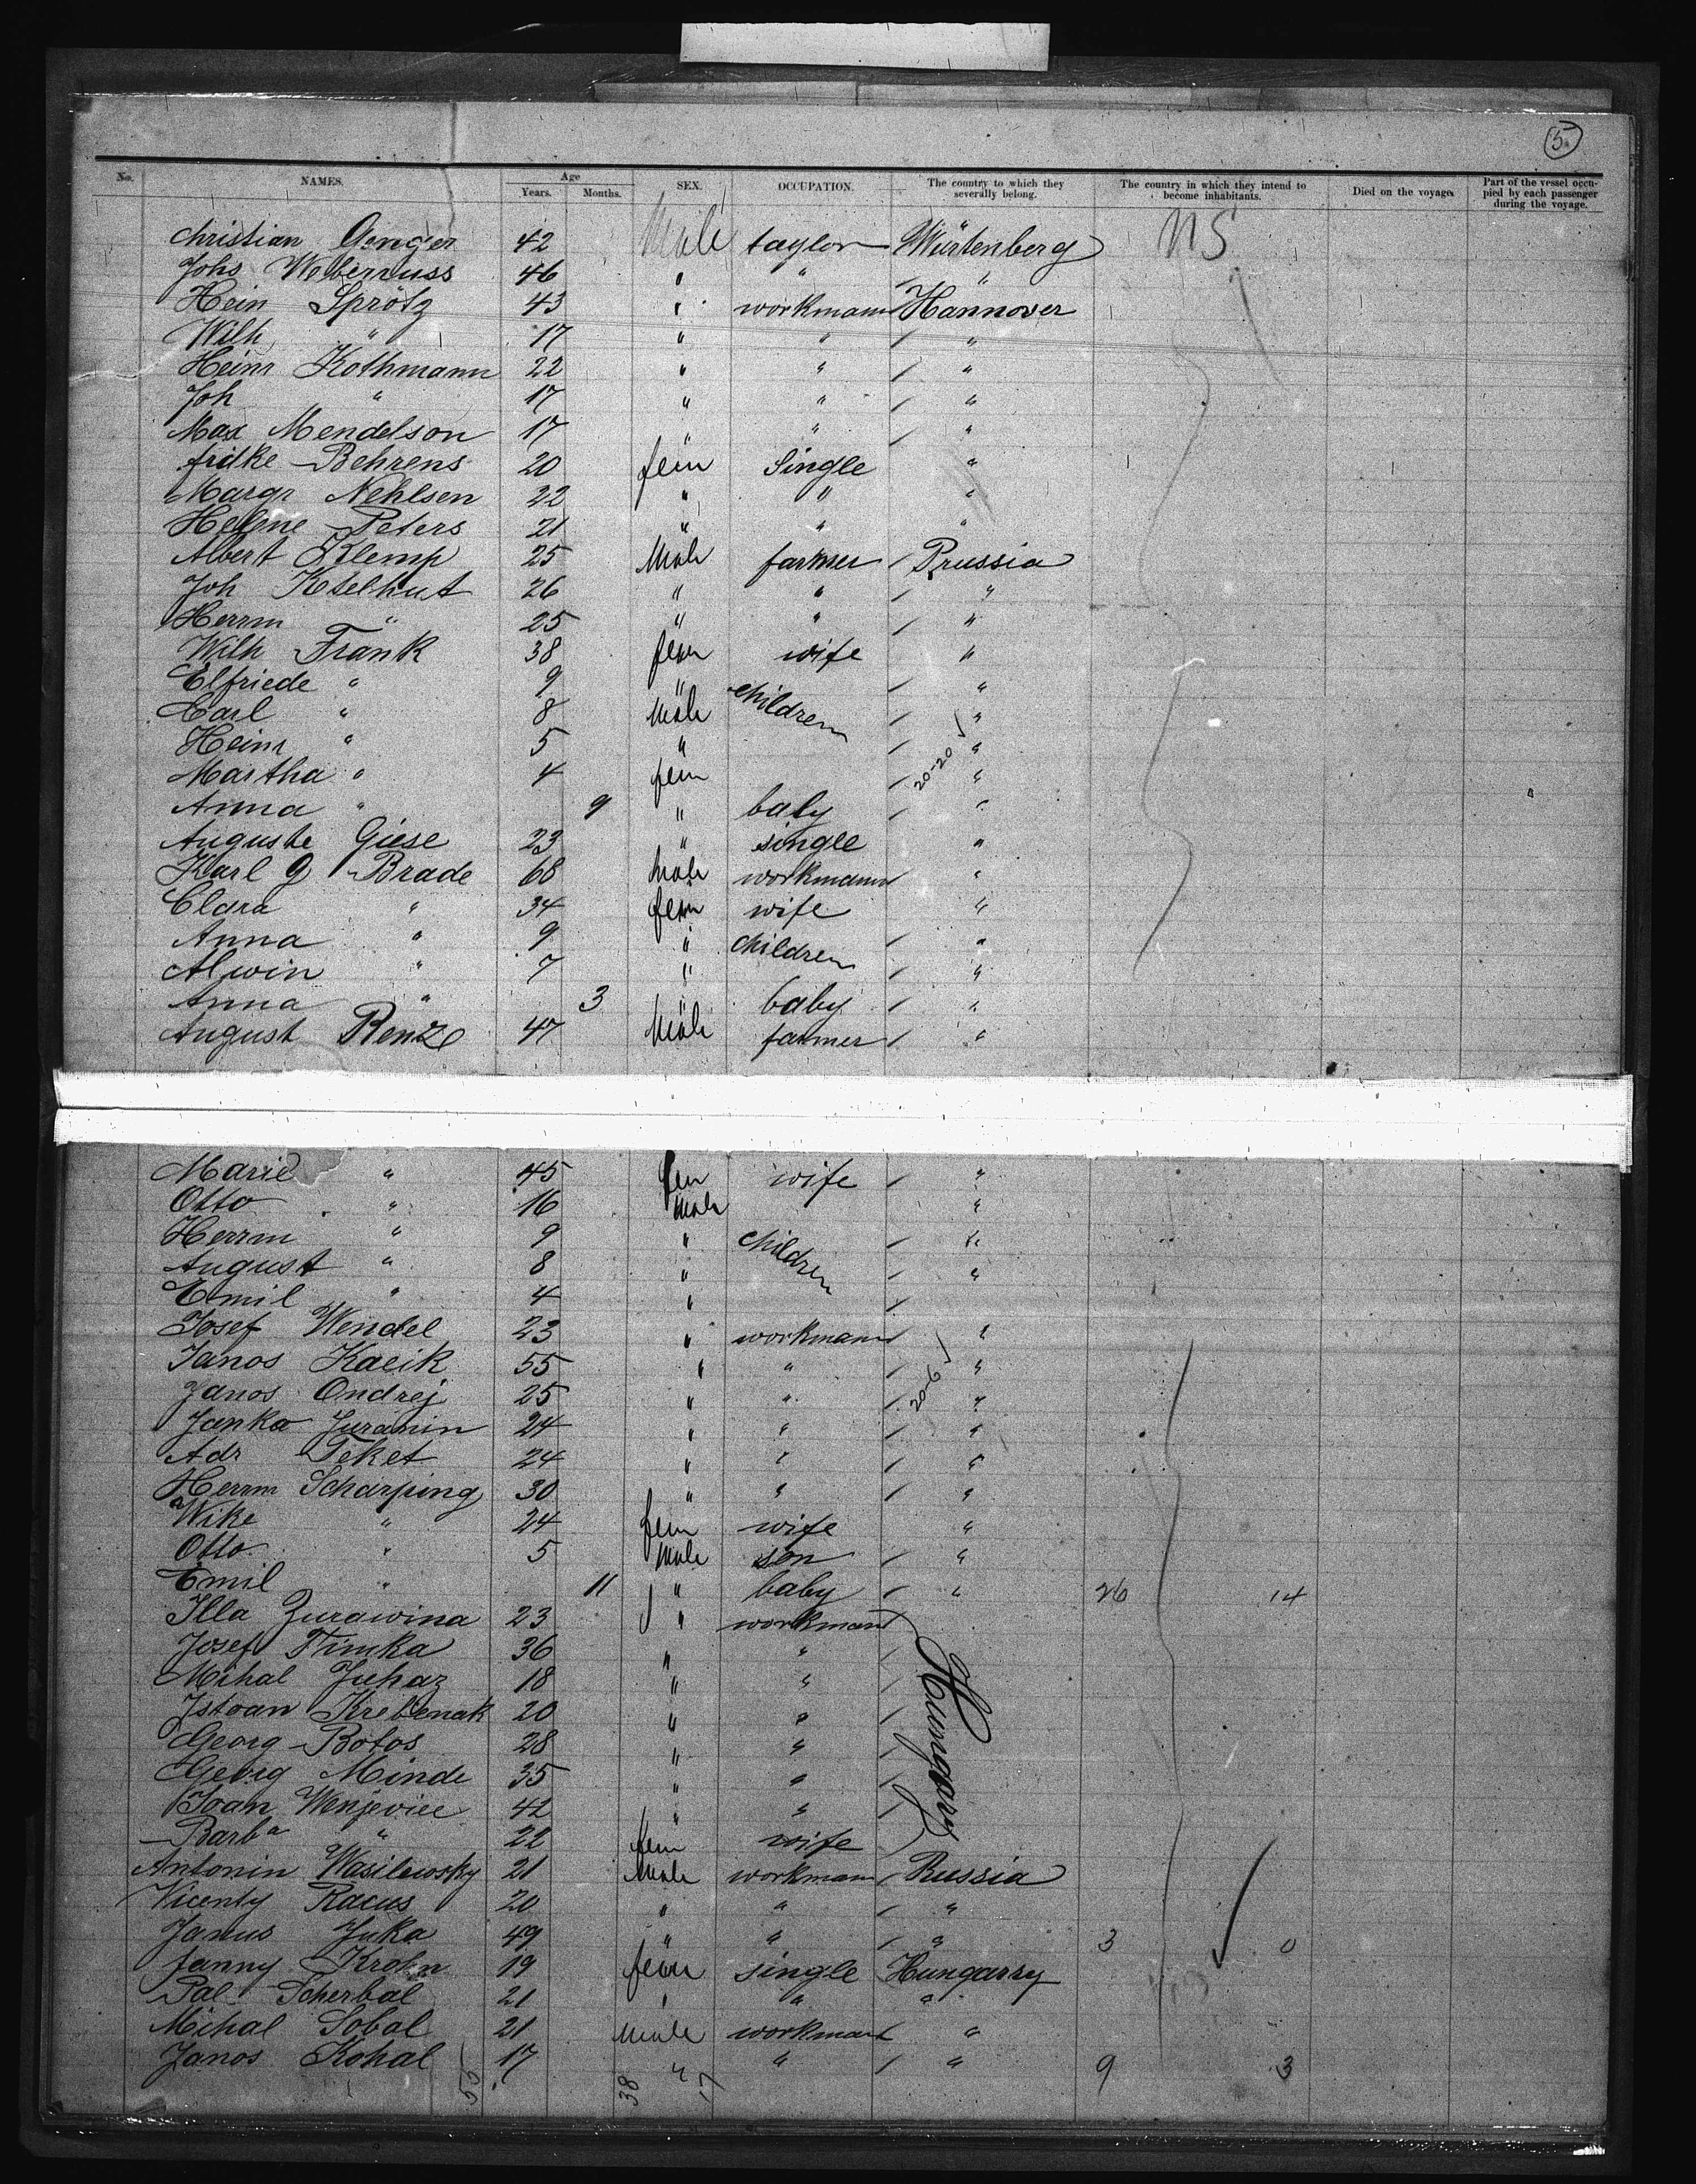 5.
No. NAMES. Age Years. Months. SEX. OCCUPATION. The country to which they severally belong. The country in which they intend to become inhabitants. Died on the voyage. Part of the vessel occupied by each passenger during the voyage.
Christian Genger 42 Male taylor Würtenberg US
Johs Weberruss 46 " " "
Hein Sprötz 43 " workmann Hannover
Wilh " 17 " " "
Heinr Kothmann 22 " " "
Joh " 17 " " "
Max Mendelson 17 " " "
fridke Behrens 20 fem Single "
Margr Nehlsen 22 " " "
Helene Peters 21 " " "
Albert Klemp 25 Male farmer Prussia
Joh Ketelhut 26 " " "
Herrm " 25 " " "
Wilh Frank 38 fem wife "
Elfriede " 9 " children "
Carl " 8 Male "
Heinr " 5 " "
Martha " 4 fem 20-20 "
Anna " 9 " baby "
Auguste Giese 23 " single "
Karl G Brade 68 Male workmann "
Clara " 34 fem wife "
Anna " 9 " children "
Alwin " 7 " "
Anna " 3 " baby "
August Renz 47 Male farmer "
Marie " 45 fem wife "
Otto " 16 Male "
Herrm " 9 " children "
August " 8 " "
Emil " 4 "
Josef Wendel 23 " workmann "
Janos Kacik 55 " " "
Janos Ondrej 25 " " 20-6 "
Janko Juranin 24 " " "
Adr Teket 24 " " "
Herrm Scharping 30 " " "
Wike " 24 fem wife "
Otto " 5 Male son "
Emil " 11 " baby " 26 14
Illa Zurawina 23 " workmann Hungary
Josef Timka 36 " "
Mihal Juhaz 18 " "
Istoan Krebenak 20 " "
Georg Botos 28 " "
Georg Minde 35 " "
Joan Wenjeviec 42 " "
Barba " 22 fem wife
Antonin Wasilewsky 21 Male workmann Russia
Vicenty Racus 20 " " "
Janus Juka 49 " " " 3 0
fanny Krohn 19 fem single Hungarry
Pal Scherbal 21 " " "
Mihal Sobal 21 Male workmann "
Janos Kohal 17 " " " 9 3
55 38 17